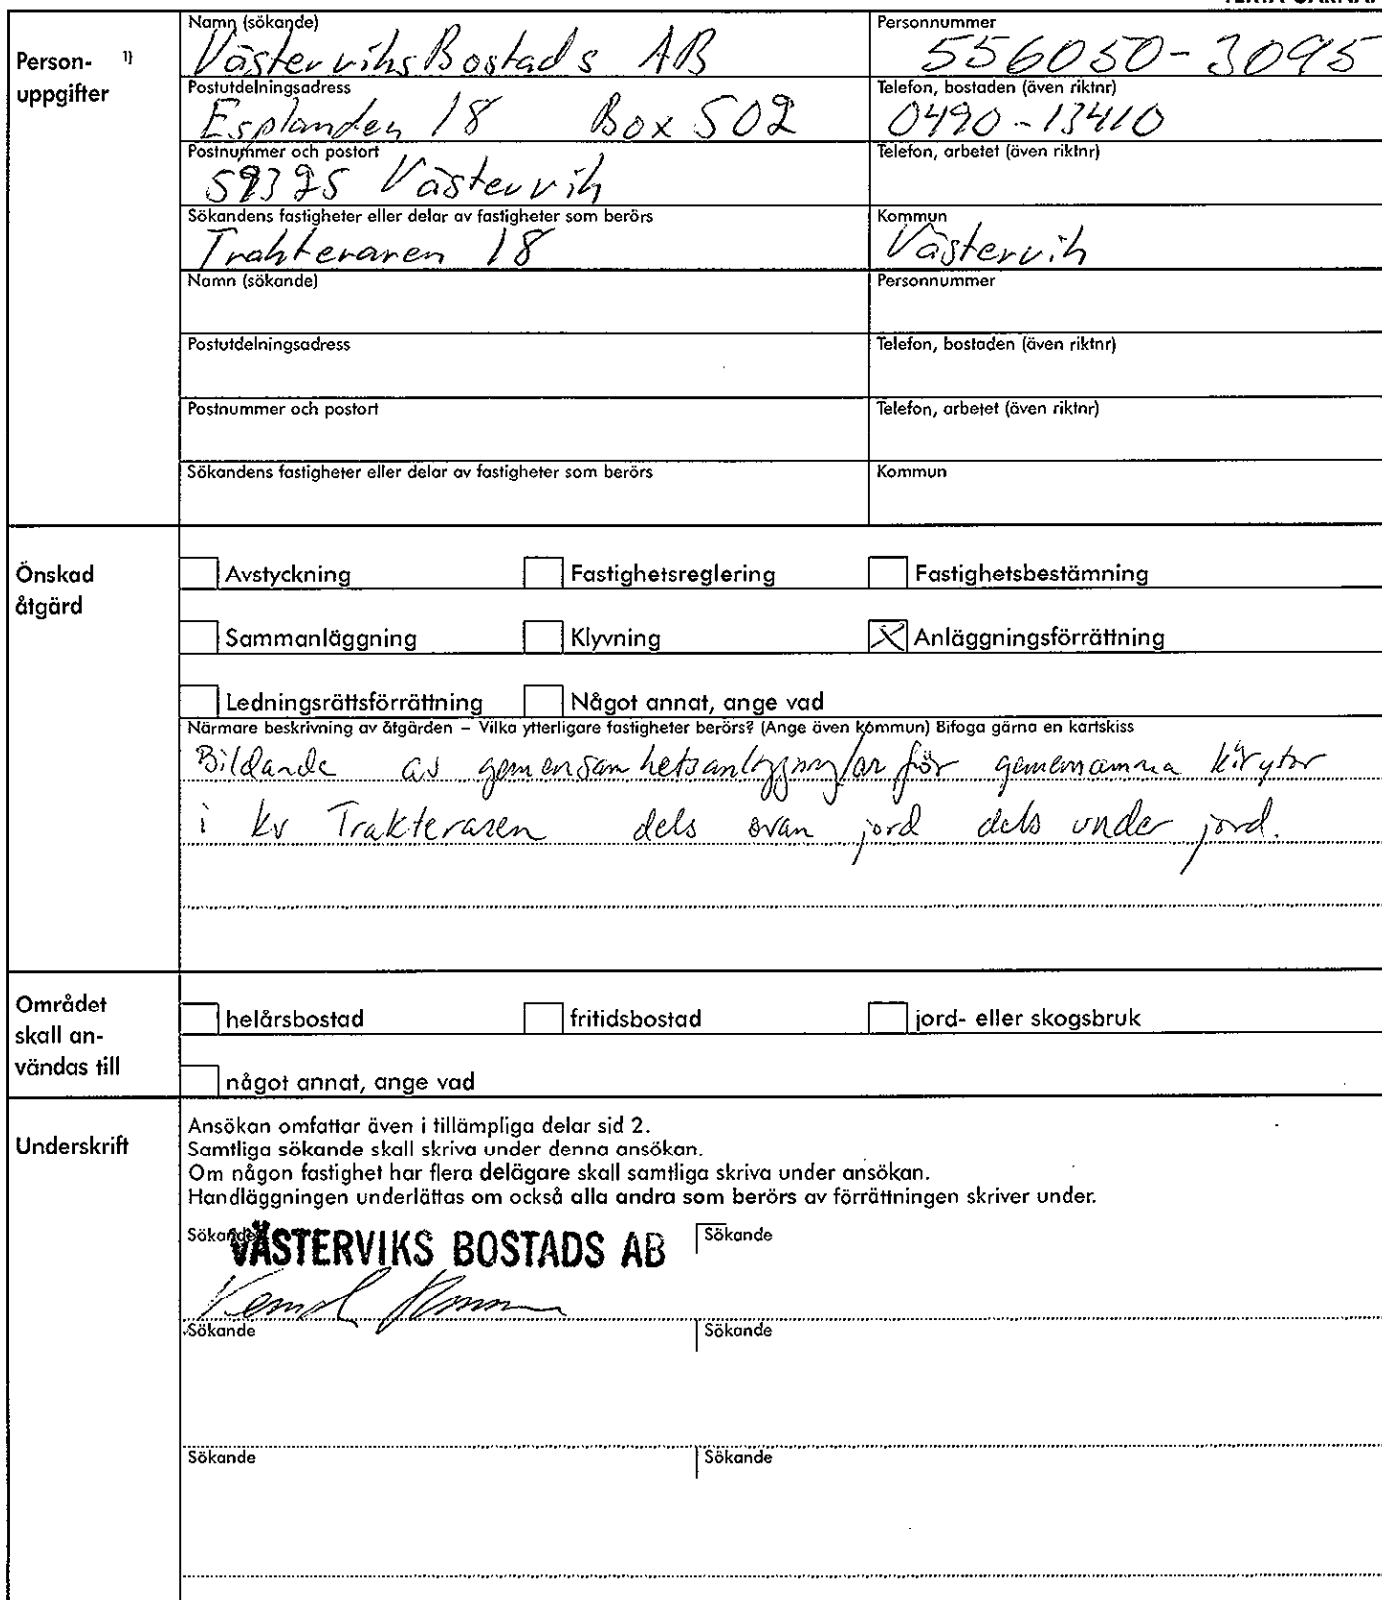 Person- 1)
uppgifter
Namn (sökande)
Västerviks Bostads AB
Personnummer
556050-3095
Postutdelningsadress
Esplanden 18 Box 502
Telefon, bostaden (även riktnr)
0490-13410
Postnummer och postort
59325 Västervik
Telefon, arbetet (även riktnr)
Sökandens fastigheter eller delar av fastigheter som berörs
Trakteraren 18
Kommun
Västervik
Namn (sökande)
Personnummer
Postutdelningsadress
Telefon, bostaden (även riktnr)
Postnummer och postort
Telefon, arbetet (även riktnr)
Sökandens fastigheter eller delar av fastigheter som berörs
Kommun
Önskad
åtgärd
Avstyckning Fastighetsreglering Fastighetsbestämning
Sammanläggning Klyvning X Anläggningsförrättning
Ledningsrättsförrättning Något annat, ange vad
Närmare beskrivning av åtgärden – Vilka ytterligare fastigheter berörs? (Ange även kommun) Bifoga gärna en kartskiss
Bildande av gemensamhetsanläggning/ar för gemensamma körytor
i kv Trakteraren dels ovan jord dels under jord.
Området
skall an-
vändas till
helårsbostad fritidsbostad jord- eller skogsbruk
något annat, ange vad
Underskrift
Ansökan omfattar även i tillämpliga delar sid 2.
Samtliga sökande skall skriva under denna ansökan.
Om någon fastighet har flera delägare skall samtliga skriva under ansökan.
Handläggningen underlättas om också alla andra som berörs av förrättningen skriver under.
Sökande Sökande
VÄSTERVIKS BOSTADS AB
Sökande Sökande
Sökande Sökande